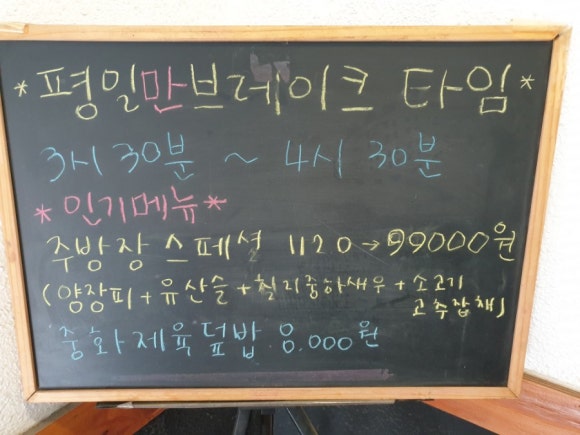 *평일만브레이크 타임*
3시 30분 ~ 4시 30분
*인기메뉴*
주방장 스페셜 1120→99000원
(양장피+유산슬+칠리중하새우+소고기
고추잡채)
중화제육덮밥 8.000원